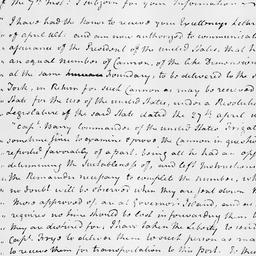 of the 9th Inst: I subjoin for your Information
I have had the honor to receive your Excellency's Letter
of April Ult. and am now authorized to communicate
assurance of the President of the United States, that h
an equal number of Cannon, of the like Dimensions
at the same Foundary, to be delivered to the S
York, in Return for such Cannon as may be received
State for the use of the United States, under a Resolution
Legislature of the said State dated the 27th April
Capt. Barry, Commander of the United States Frigate
sometime since to examine & prove the Cannon in question
reported favourably of a part. Going all he had an opp
determining the suitableness of, and left Instructions
the Remainder necessary to complete the number, wh
no doubt will be observed when they are sent down
more approved of are at Governor's Island, and as
requires no time should be lost in forwarding them
they are desired for, I have taken the Liberty to
Capt. Frye to deliver them to such person as ma
to receive them for transportation to this port.